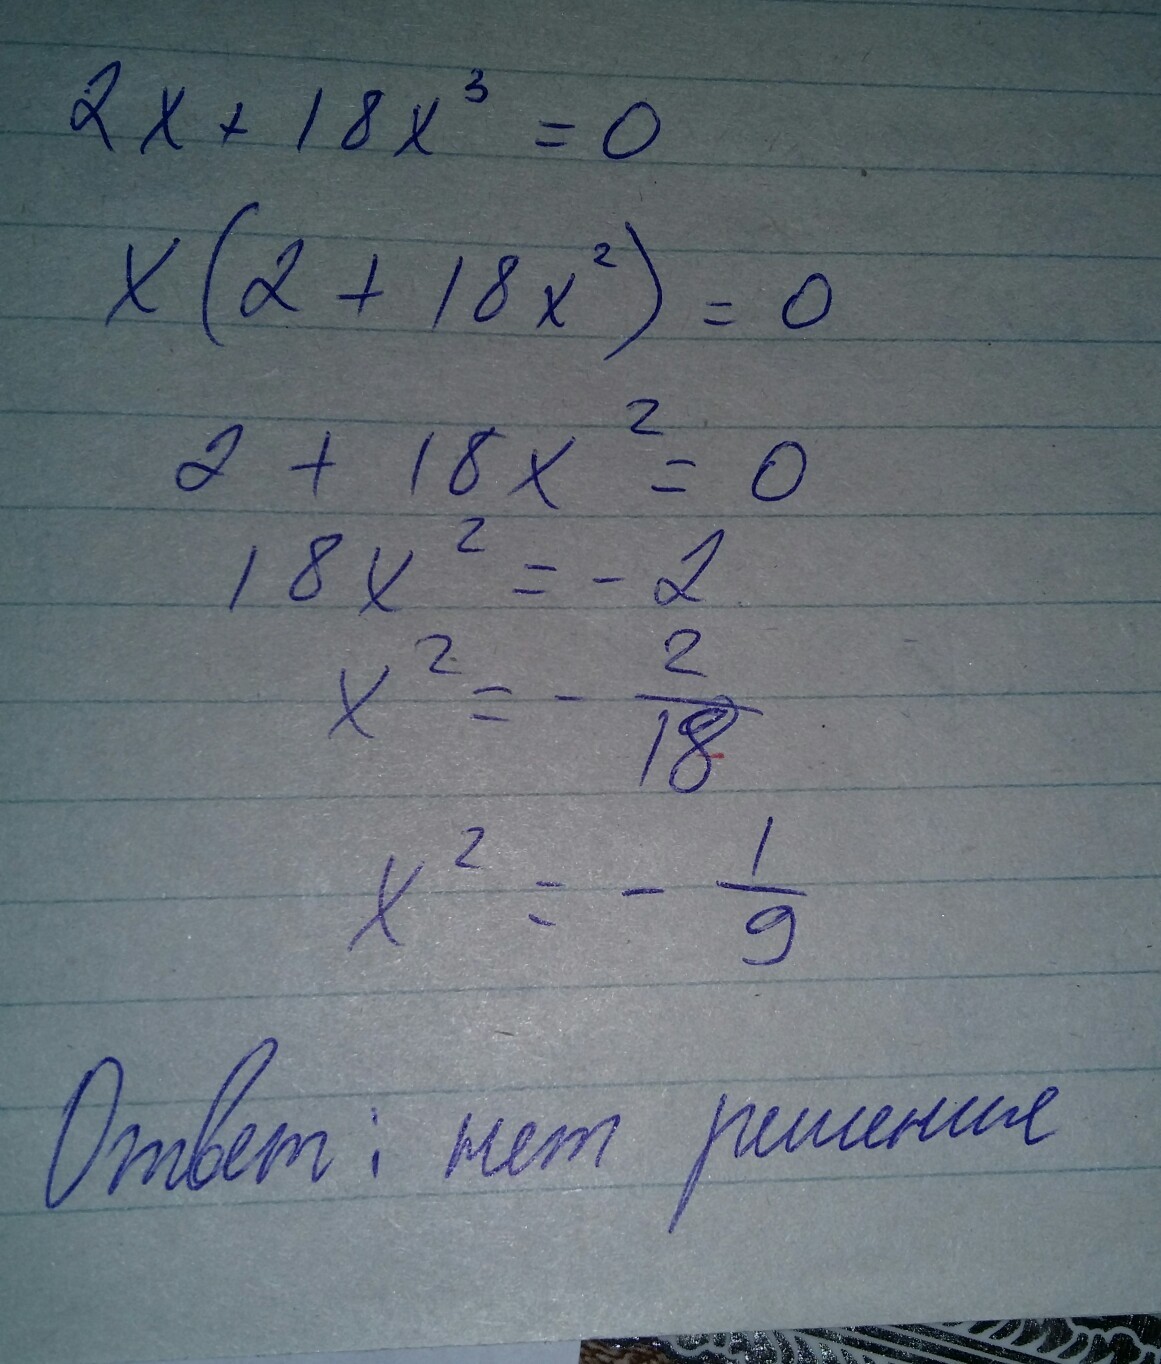 2x + 18x³ = 0
x(2 + 18x²) = 0
2 + 18x² = 0
18x² = - 2
x² = - 2/18
x² = - 1/9
Ответ: нет решения